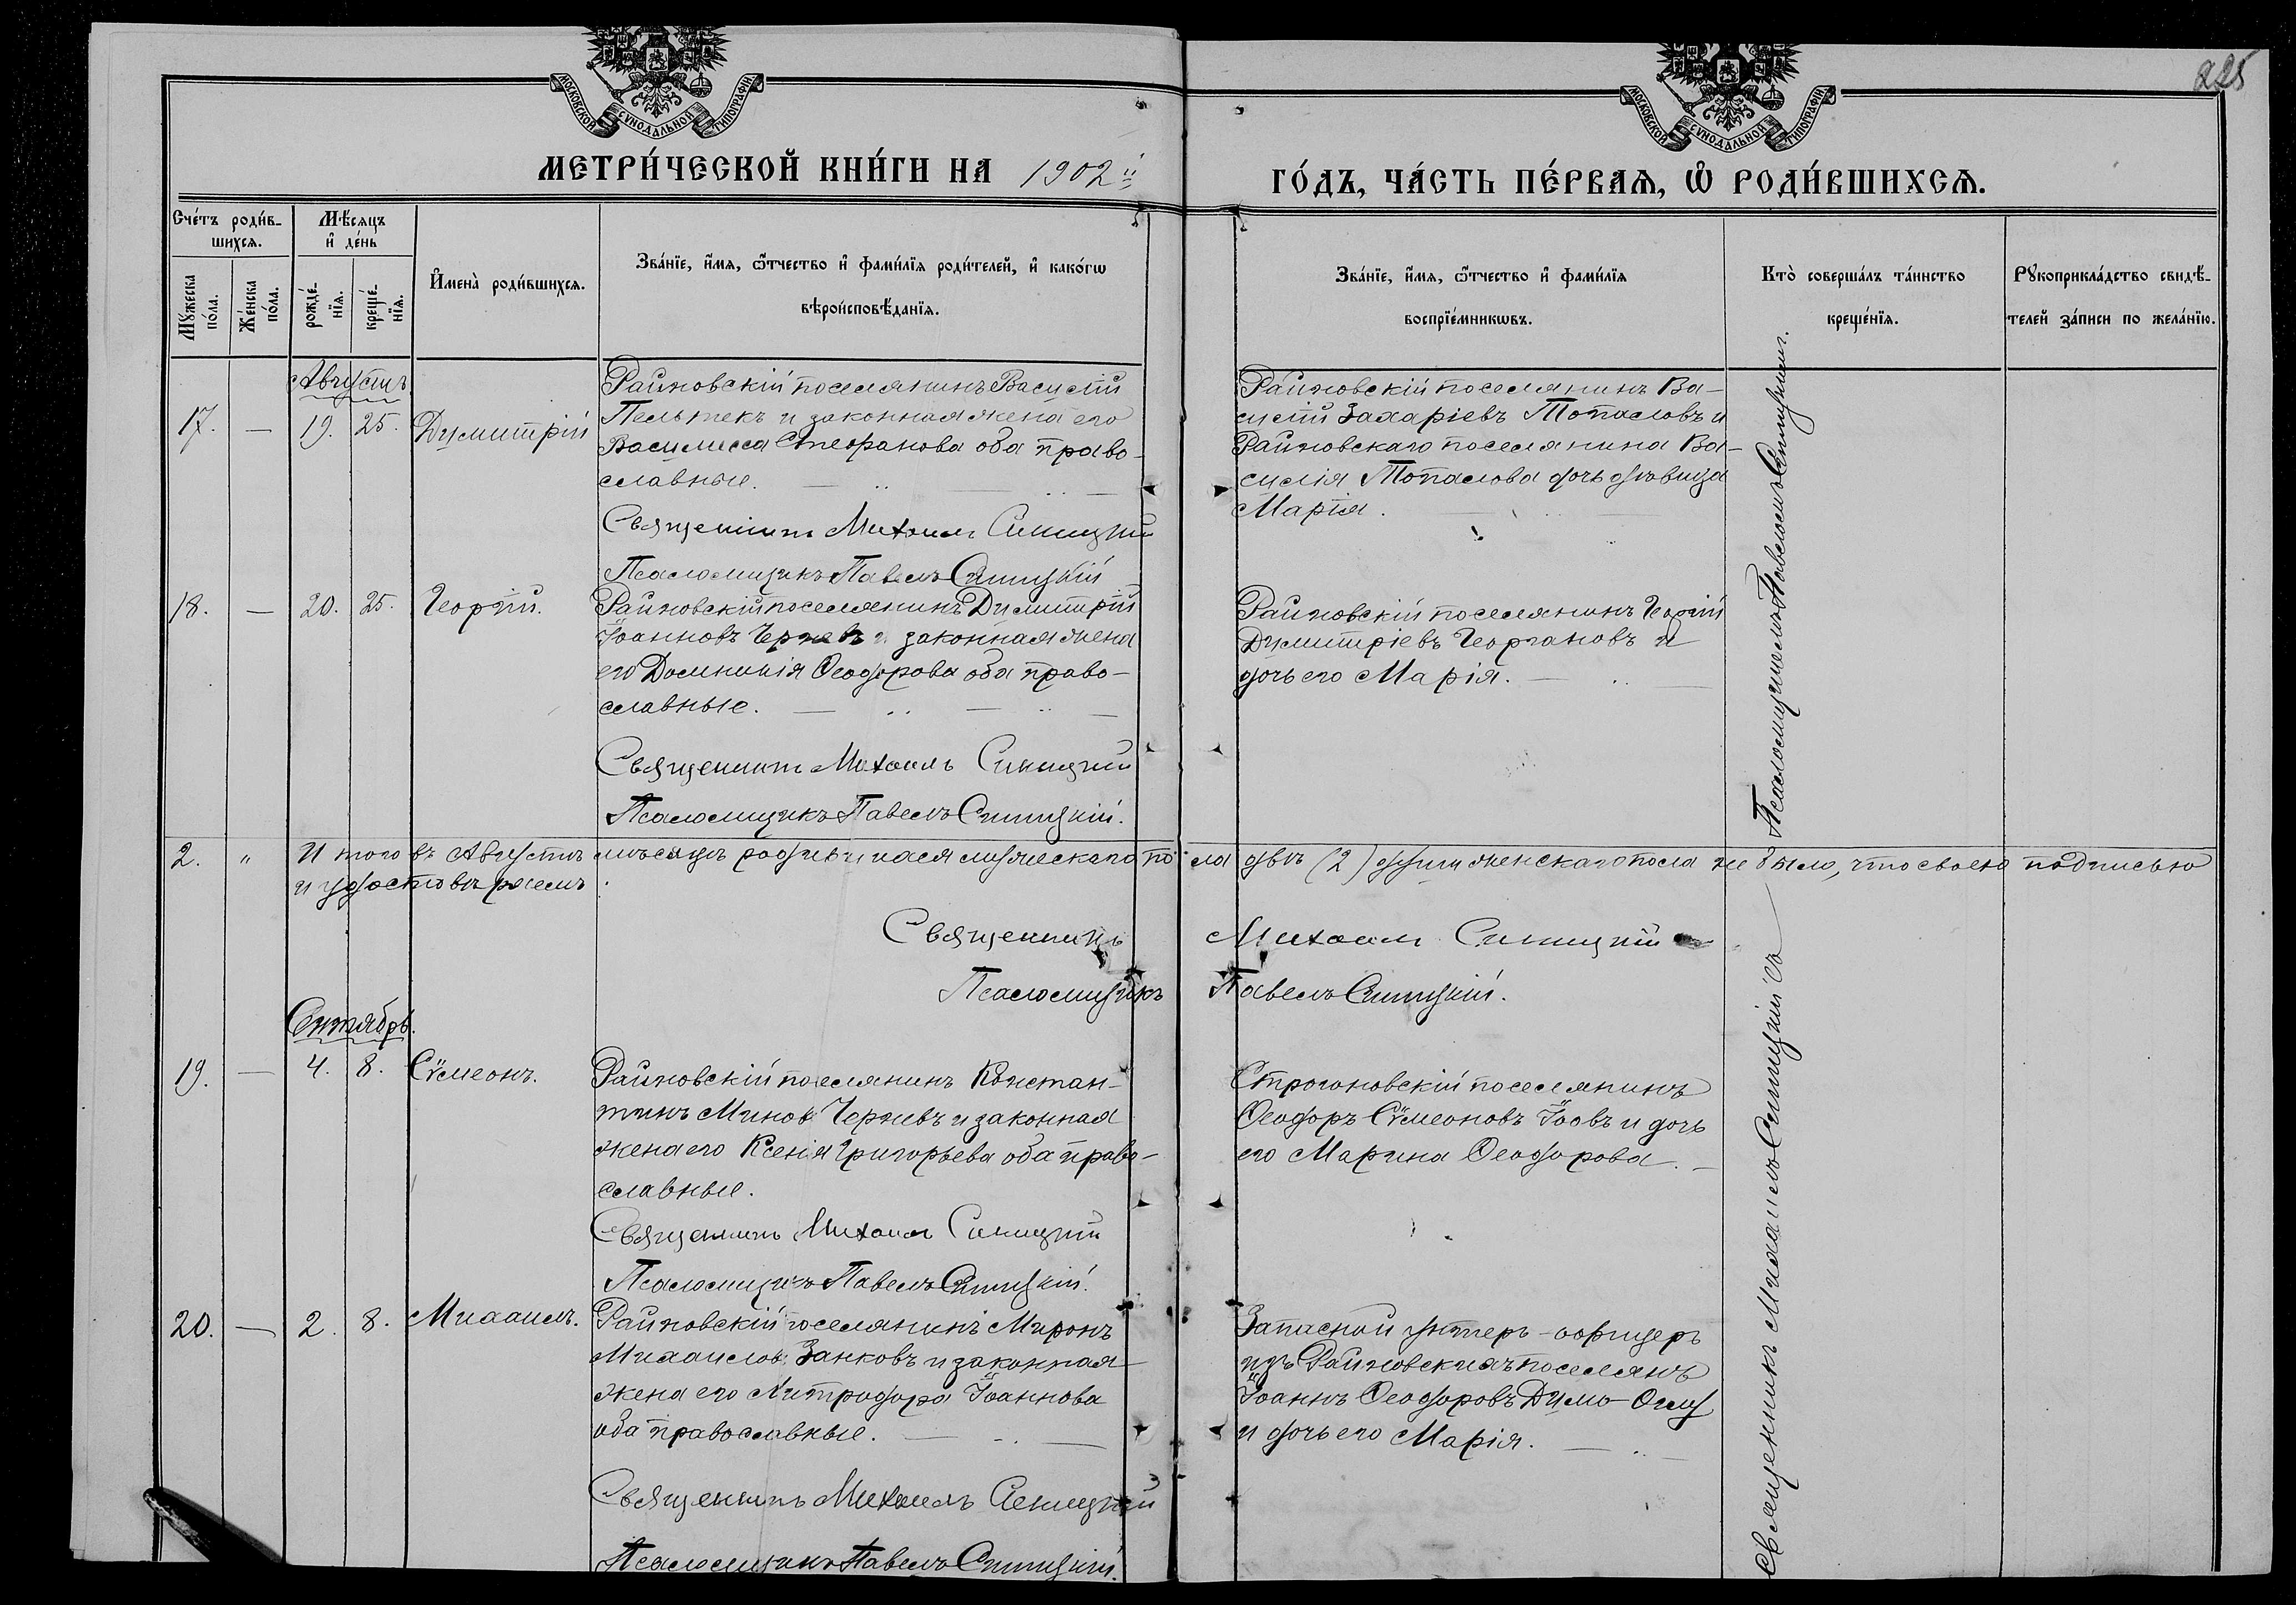 225
МОСКОВСКОЙ СѴНОДАЛЬНОЙ ТИПОГРАФІИ
МОСКОВСКОЙ СѴНОДАЛЬНОЙ ТИПОГРАФІИ
МЕТРИ́ЧЕСКОЙ КНИ́ГИ НА 1902й
ГО́ДЪ, ЧА́СТЬ ПЕ́РВАѦ, Ѡ РОДИ́ВШИХСѦ.
Сче́тъ роди́в-
шихсѧ.
Мꙋжеска по́ла.
Же́нска по́ла.
Мѣ́сѧцъ
и҆ де́нь
рожде́-
нїѧ.
креще́-
нїѧ.
И҆мена̀ роди́вшихсѧ.
Зва́нїе, и҆́мѧ, ѻ҆́тчество и҆ фами́лїѧ роди́телей, и҆ како́гѡ
вѣроисповѣ́данїѧ.
Зва́нїе, и҆́мѧ, ѻ҆́тчество и҆ фами́лїѧ
воспрїе́мникѡвъ.
Кто̀ соверша́лъ та́инство
креще́нїѧ.
Рꙋкоприкла́дство свидѣ́-
телей за́писи по жела́нїю.
Августъ
17. — 19. 25. Димитрій
Райновскій поселянинъ Василій
Пельтекъ и законная жена его
Василисса Стефанова оба право-
славные.
Священникъ Михаилъ Синицкій
Псаломщикъ Павелъ Синицкій
Райновскій поселянинъ Ва-
силій Захаріевъ Топаловъ и
Райновскаго поселянина Ва-
силія Топалова дочь девица
Марія.
18. — 20. 25. Георгій.
Райновскій поселянинъ Димитрій
Іоанновъ Черневъ и законная жена
его Домникія Ѳеодорова оба право-
славные.
Священникъ Михаилъ Синицкій
Псаломщикъ Павелъ Синицкій.
Райновскій поселянинъ Георгій
Димитріевъ Чоргановъ и
дочь его Марія.
2. " Итого въ Августѣ мѣсяцѣ родившихся мужескаго пола двѣ (2) души женскаго пола не было, что своею подписью
и удостовѣряемъ.
Священникъ Михаилъ Синицкій
Псаломщикъ Павелъ Синицкій.
Сентябрь.
19. — 4. 8. Сѵмеонъ.
Райновскій поселянинъ Констан-
тинъ Миновъ Черневъ и законная
жена его Ксенія Григорьева оба право-
славные.
Священникъ Михаилъ Синицкій
Псаломщикъ Павелъ Синицкій.
Строгоновскій поселянинъ
Ѳеодоръ Сѵмеоновъ Іовъ и дочь
его Марина Ѳеодорова.
20. — 2. 8. Михаилъ.
Райновскій поселянинъ Миронъ
Михаиловъ Занковъ и законная
жена его Митродора Іоаннова
оба православные.
Священникъ Михаилъ Синицкій
Псаломщикъ Павелъ Синицкій.
Запасной унтеръ-офицеръ
изъ Райновскихъ поселянъ
Іоаннъ Ѳеодоровъ Димо-Оглу
и дочь его Марія.
Священникъ Михаилъ Синицкій съ Псаломщикомъ Павломъ Синицкимъ.